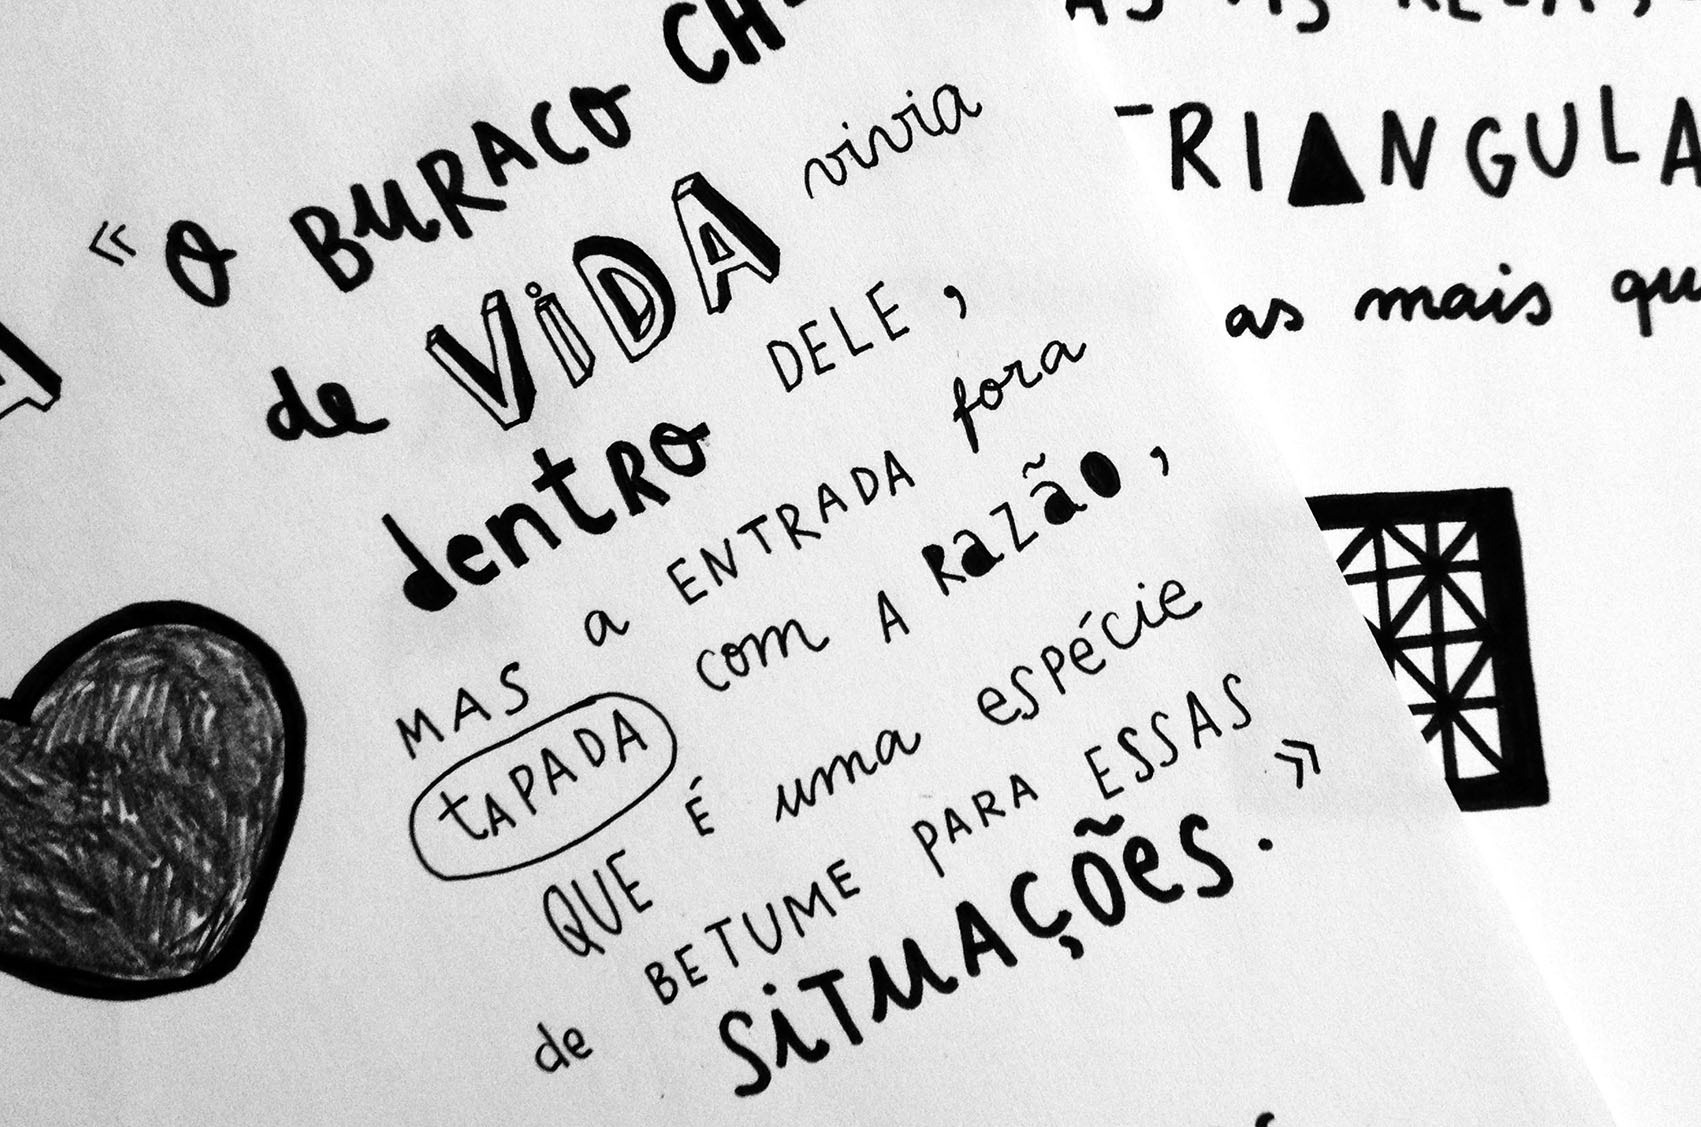 «O BURACO CH
de ViDA vivia
dentRO DELE,
MAS a ENTRADA fora
tAPADA com A RaZãO,
QUE É uma espécie
de BETUME PARA ESSAS
SiTuAÇÕeS.»
TRIANGULA
as mais qu